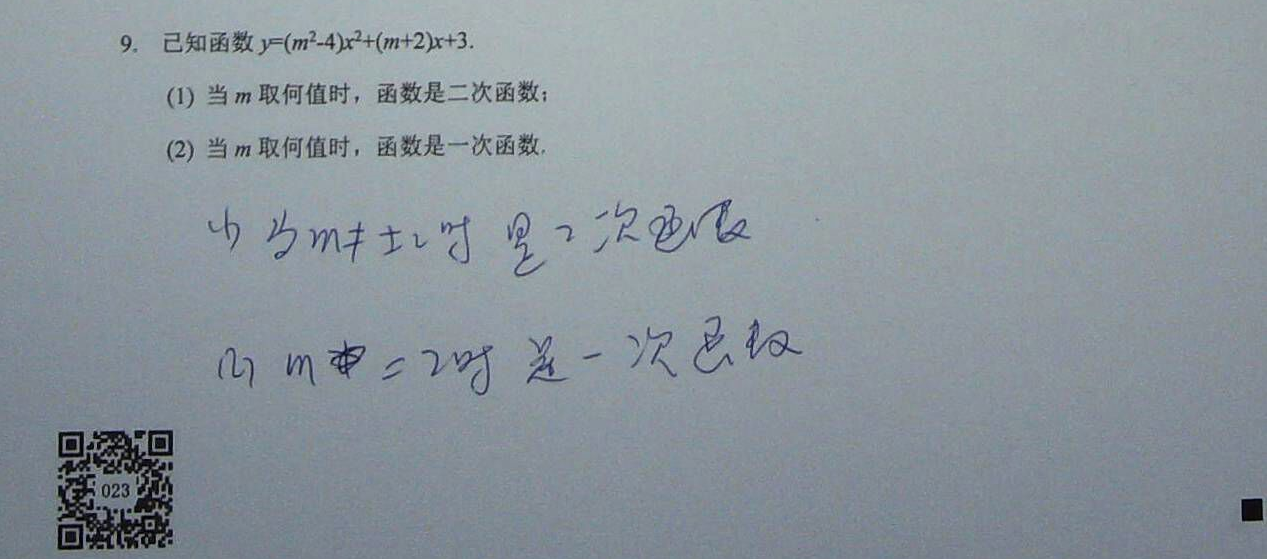 9. 已知函数 y=(m²-4)x²+(m+2)x+3.
(1) 当 m 取何值时，函数是二次函数；
(2) 当 m 取何值时，函数是一次函数.
(1) 当m≠±2时 是二次函数
(2) m=2时 是一次函数
023